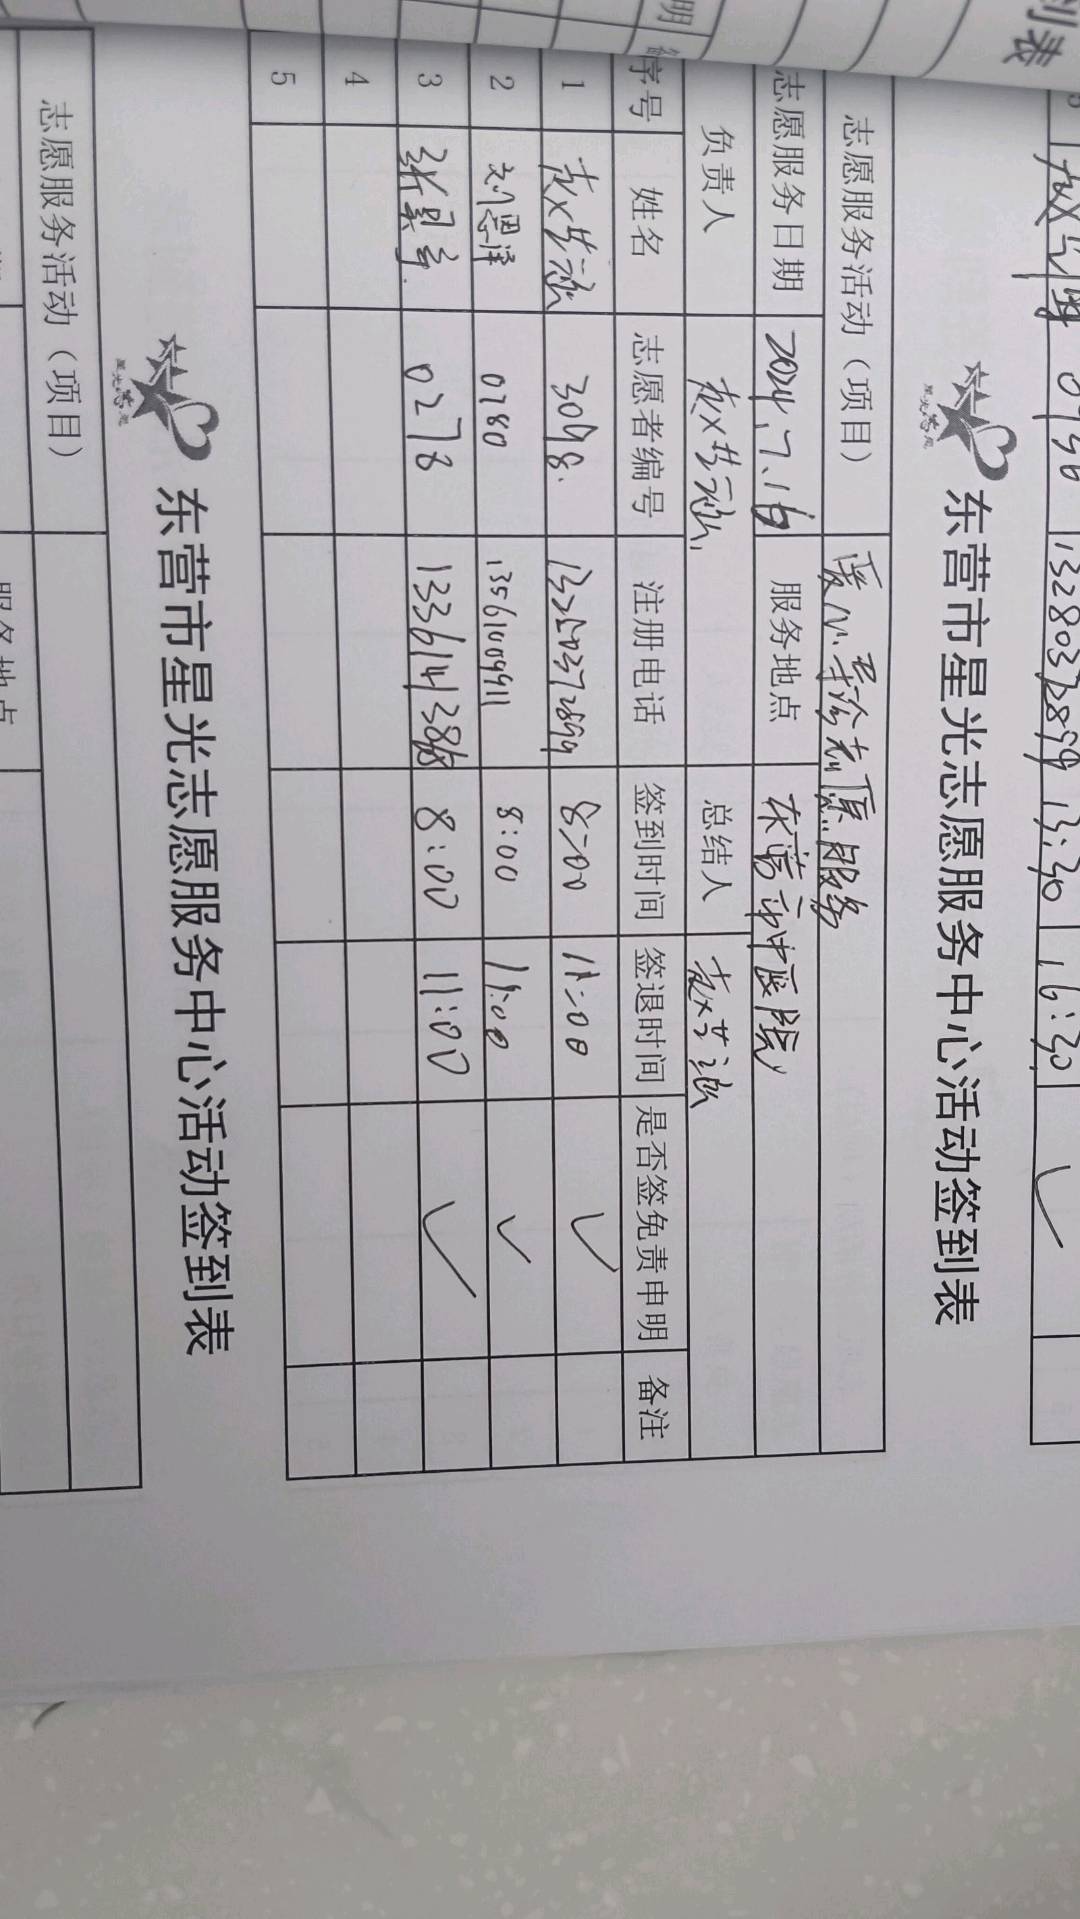 到表
13280372899 13:30 16:30 ✓
东营市星光志愿服务中心活动签到表
志愿服务活动（项目） 暖心导诊志愿服务
志愿服务日期 2024.7.16 服务地点 东营市中医院
负责人 赵艺涵 总结人 赵艺涵
序号 姓名 志愿者编号 注册电话 签到时间 签退时间 是否签免责申明 备注
1 赵艺涵 3098 8:00 11:00 ✓
2 刘恩泽 0780 13561009911 8:00 11:00 ✓
3 0278 8:00 11:00 ✓
4
5
东营市星光志愿服务中心活动签到表
志愿服务活动（项目）
服务地点